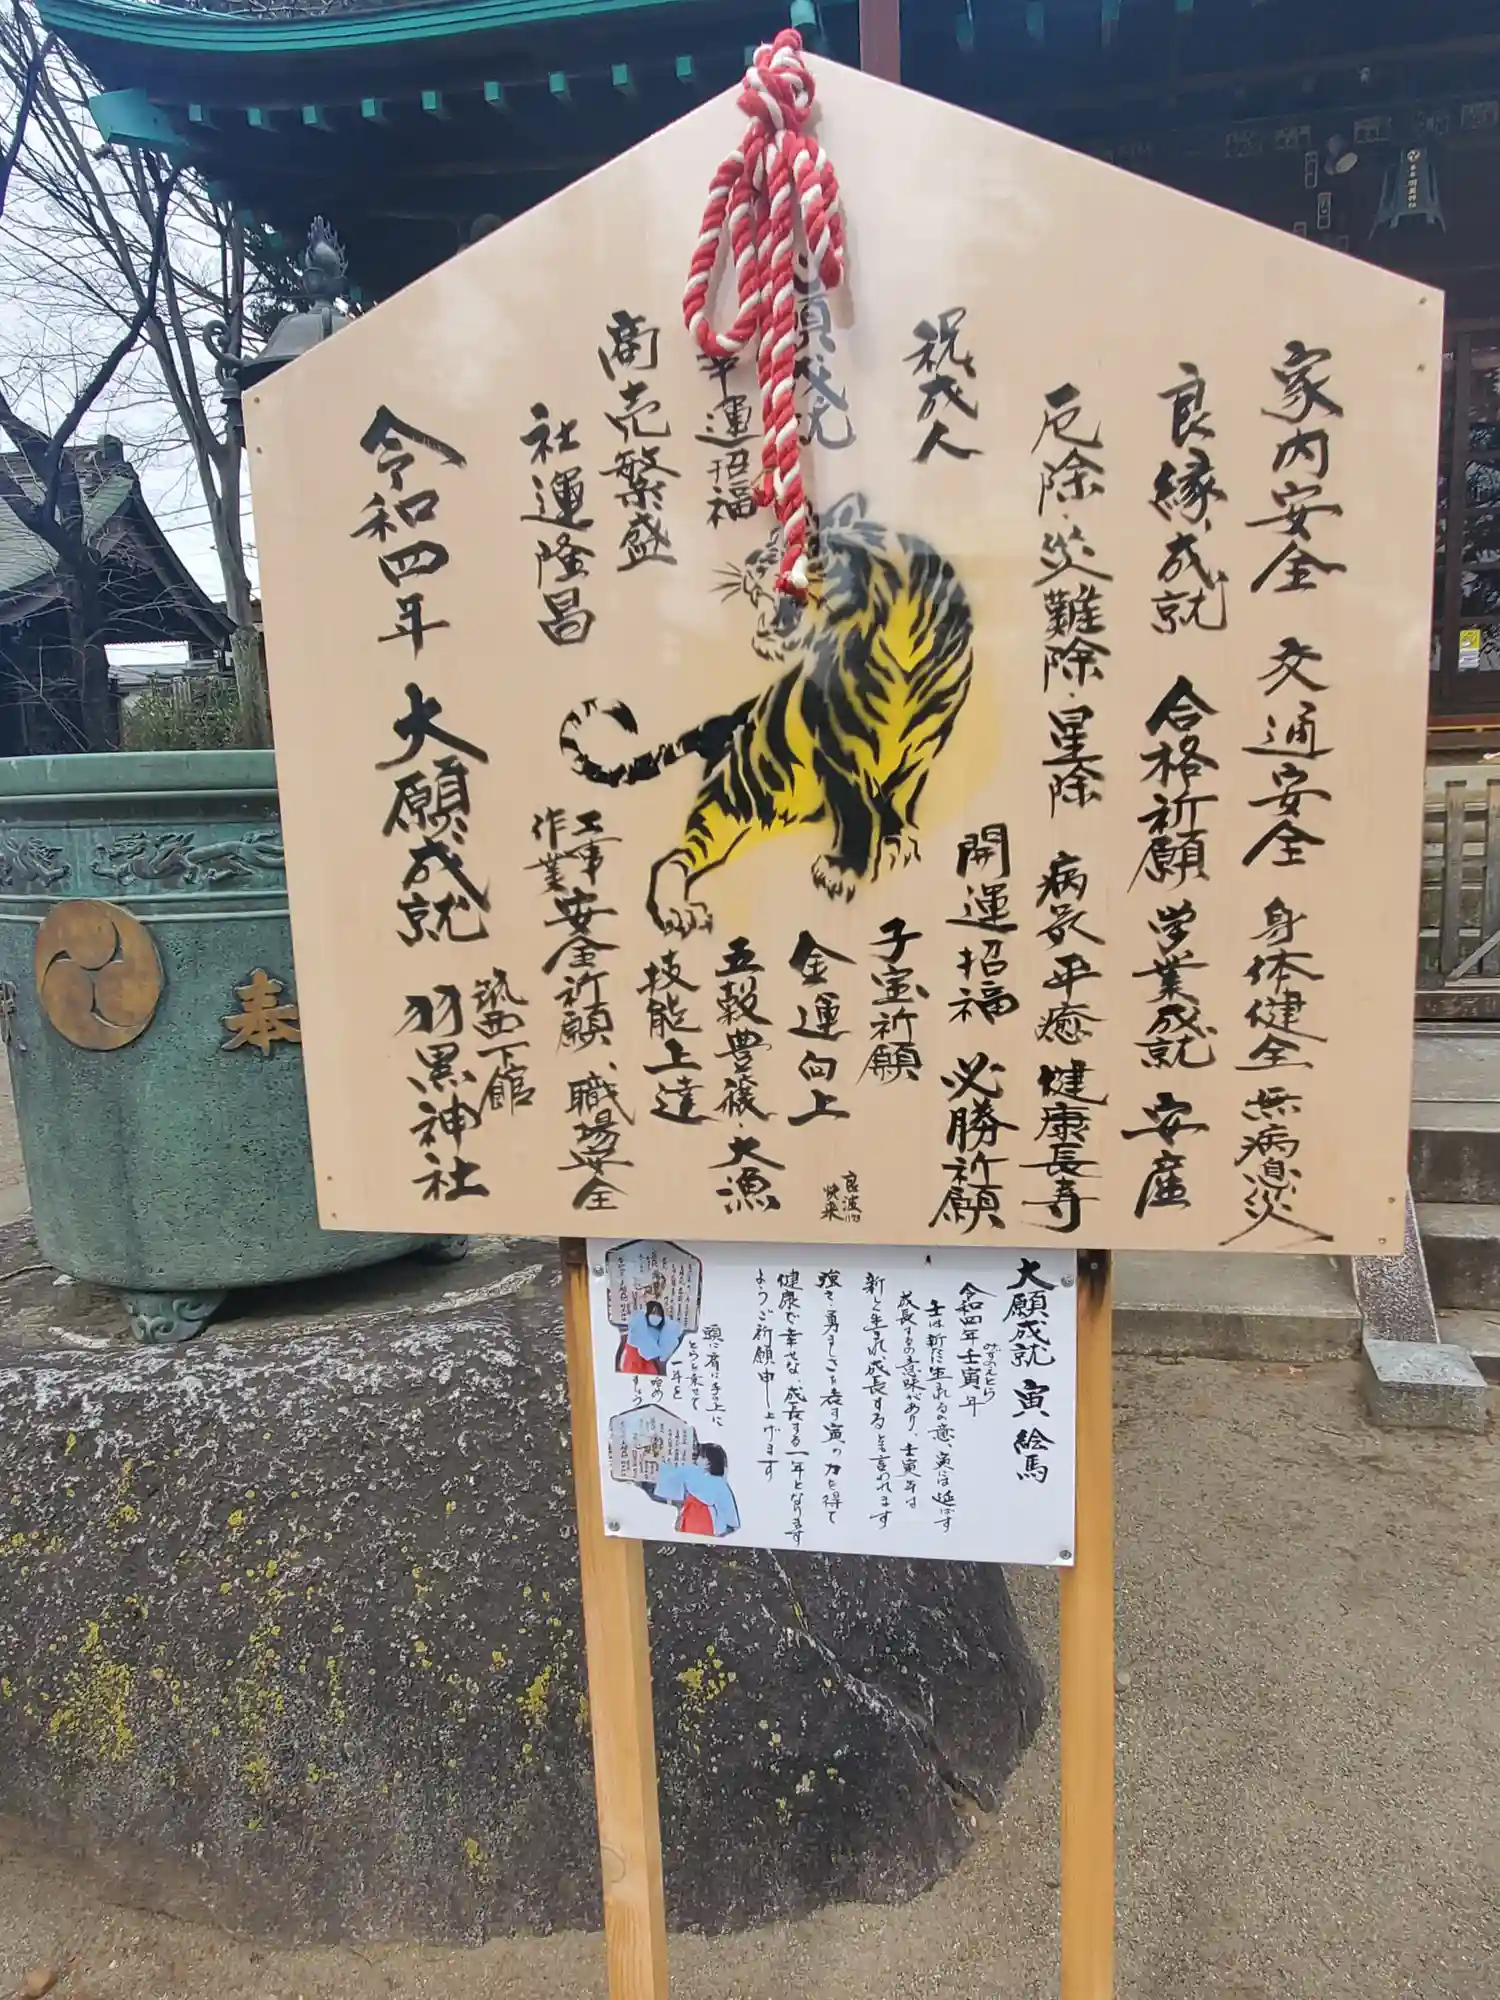 家内安全 交通安全 身体健全 無病息災
良縁成就 合格祈願 学業成就 安産
厄除・災難除・星除 病気平癒 健康長寿
祝成人
開運招福 必勝祈願
心願成就
子宝祈願
金運向上
幸運招福
五穀豊穣・大漁
商売繁盛
技能上達
社運隆昌
工事
作業
安全祈願、職場安全
令和四年 大願成就
筑西下館
羽黒神社
奉
大願成就 寅 絵馬
みずのえとら
令和四年壬寅年
壬は新たに生れるの意、寅には延ばす
成長するの意味があり、壬寅年は
新しく生まれ、成長すると言われます
強さ、勇ましさを表す寅の力を得て
健康で幸せな、成長する一年となります
ようご祈願申し上げます
頭に肩に手の上に
とらを乗せて
一年を